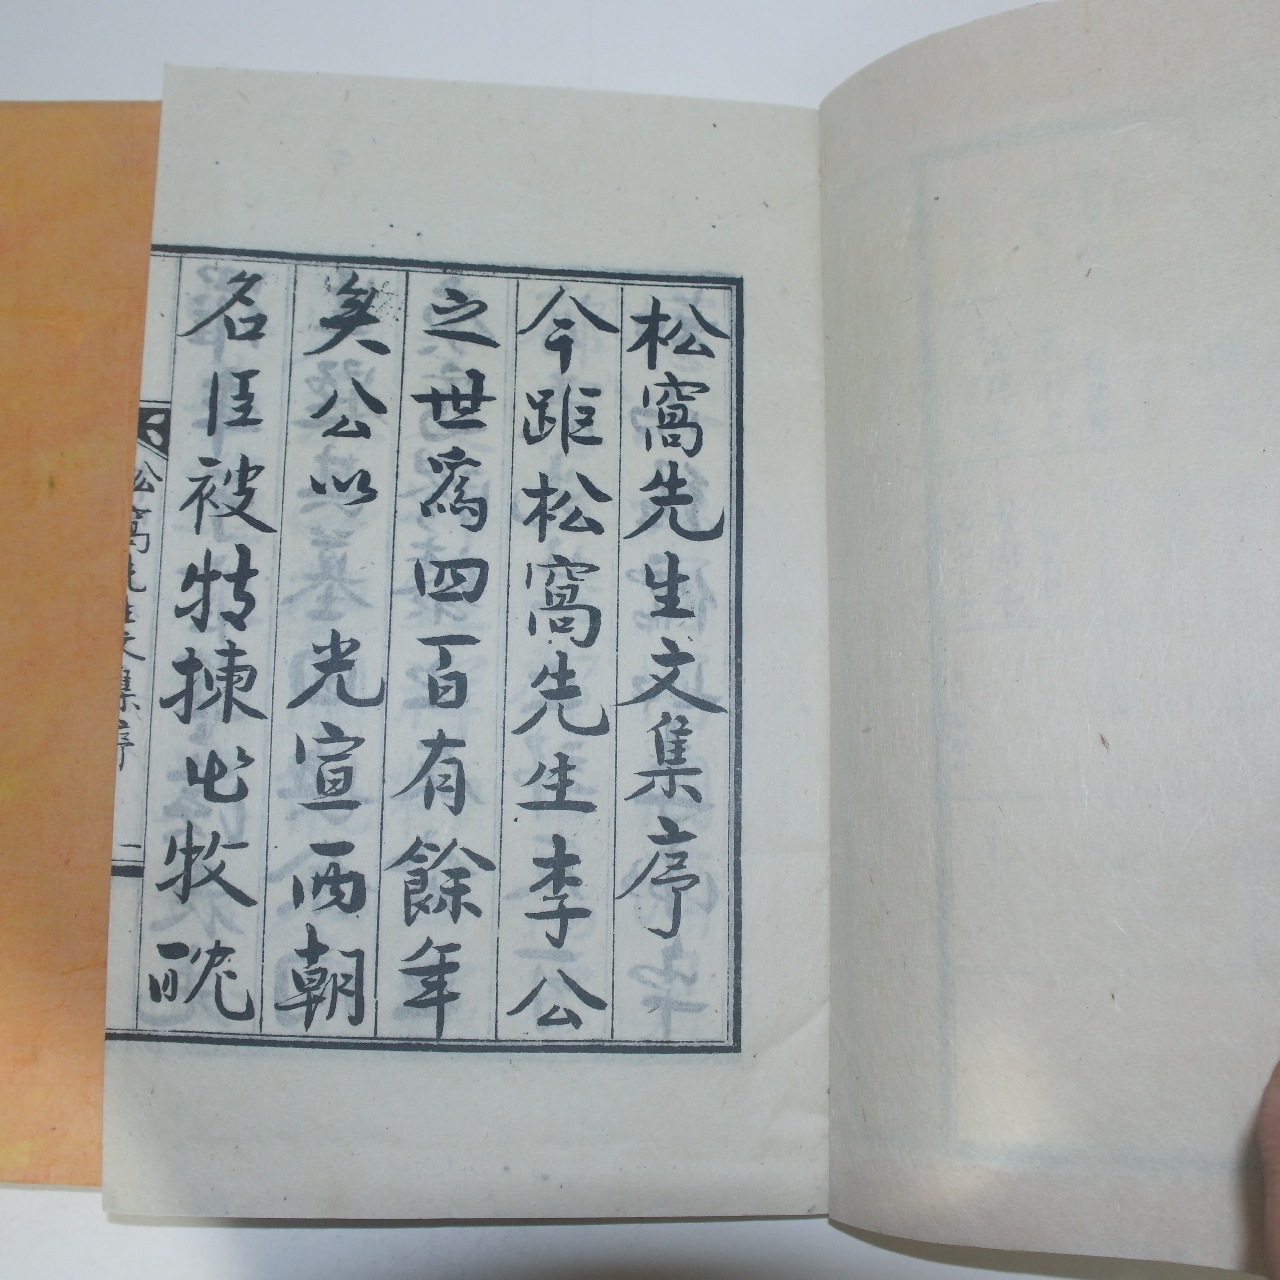 松窩先生文集序
今距松窩先生李公
之世爲四百有餘年
矣公以 光宣兩朝
名臣被特揀出牧
松窩先生文集序
一